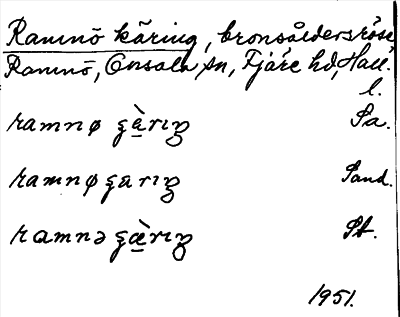 Ramnö käring, bronsåldersröse
Ramnö, Onsala sn, Fjäre hd, Hall.
l.
ramnø Sa.
ramnø Sand.
ramnə St.
1951.